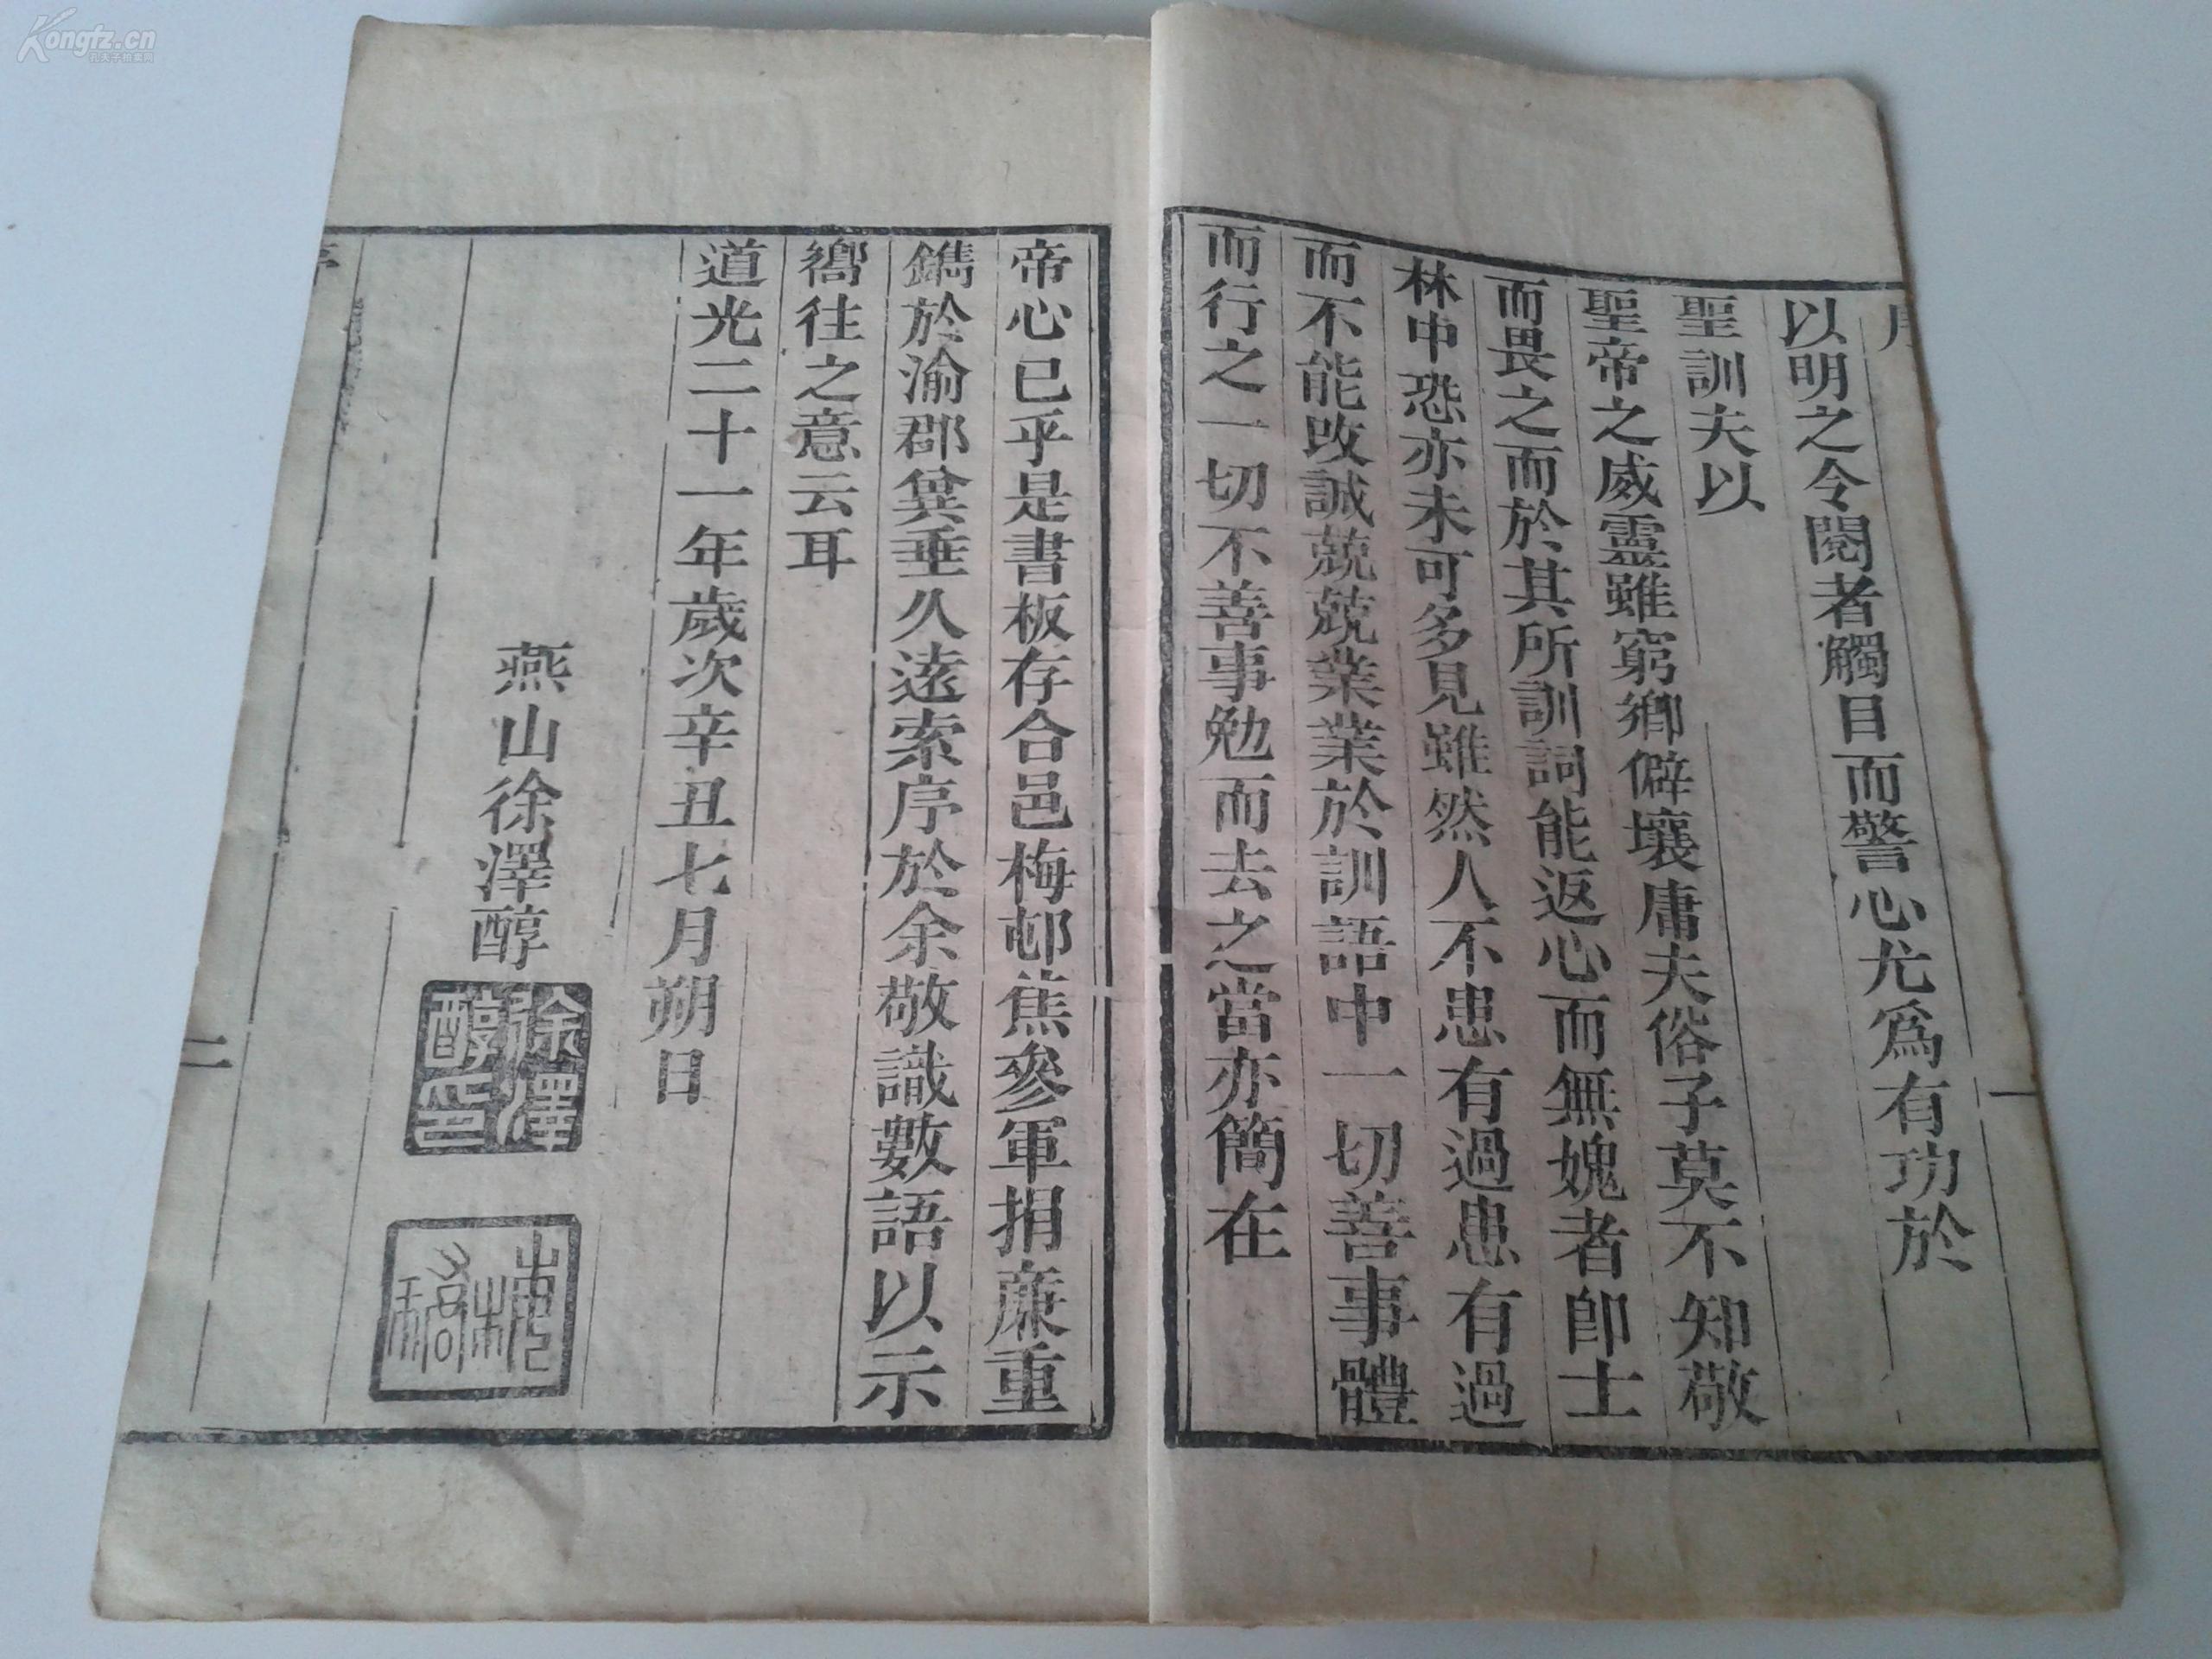 序
一
以明之令閱者觸目而警心尤爲有功於
聖訓夫以
聖帝之威靈雖窮鄉僻壤庸夫俗子莫不知敬
而畏之而於其所訓詞能返心而無媿者卽士
林中恐亦未可多見雖然人不患有過患有過
而不能改誠兢兢業業於訓語中一切善事體
而行之一切不善事勉而去之當亦簡在
帝心已乎是書板存合邑梅邨蕉參軍捐廉重
鐫於渝郡冀垂久遠索序於余敬識數語以示
嚮往之意云耳
道光二十一年歲次辛丑七月朔日
燕山徐澤醇
徐澤醇印
序
二
Kongfz.cn